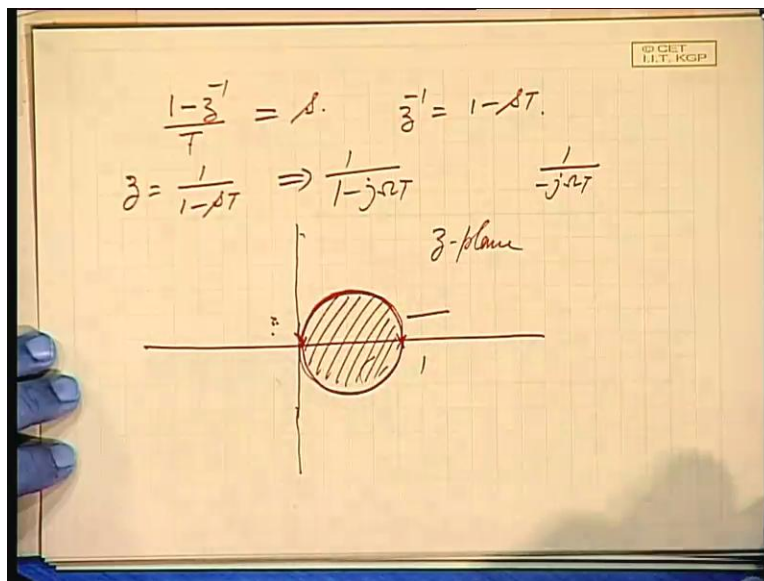 © CET
I.I.T. KGP
(1-z⁻¹)/T = s. z⁻¹ = 1-sT.
z = 1/(1-sT) ⇒ 1/(1-jΩT) 1/(-jΩT)
z-plane
1